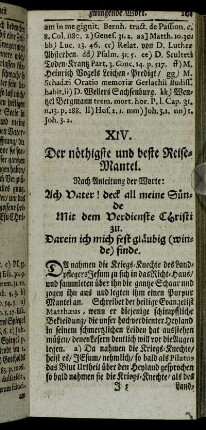 zwingende Wort.
am in me gignit. Bernh. tract. de Passion. c.
8. Col. 1181. z) Genes. 31. 2. aa) Matth. 10. 30.
bb) Luc. 23. 46. cc) Relat. von D. Luther
Absterben. dd) Psalm. 31. 5. ee) D. Scultetus
Todten-Krantz Part. 3. Conc. 14. p. 517. ff) M.
Heinrich Vogts Leichen-Predigt/ gg) M.
Schadæi Oratio memoriæ Gerlachii
habit. ii) D. Wellers Sachsenburg. kk) Wen-
zel Bergmann trem. mort. hor. P. 1. Cap. 31.
n. 13. p. 288. ll) Hos. 2. 1. mm) Joh. 3. 1. nn) 1.
Joh. 3. 2.
XIV.
Der nöthigste und beste Reise-
Mantel.
Nach Anleitung der Worte:
Ach Vater! deck all meine Sün-
de
Mit dem Verdienste Christi
zu.
Darein ich mich fest gläubig (win-
de) finde.
DA nahmen die Kriegs-Knechte des Land-
pflegers Jesum zu sich in das Richt-Haus/
und sammleten über ihn die gantze Schaar und
zogen ihn aus und legten ihm einen Purpur
Mantel an. Schreibet der heilige Evangelist
Matthæus, wenn er diejenige schimpfliche
Bekleidung/ die unser hochverdienter Heyland
in seinem schmertzlichen Leiden hat ausstehen
müssen/ denen Lesern deutlich will vor die Augen
legen. a) Da nahmen die Kriegs-Knechte/
heist es/ JEsum/ nehmlich/ so bald als Pilatus
das Blut Urtheil über den Heyland gesprochen
so bald nahmen sie die Kriegs-Knechte/ als des
Land-